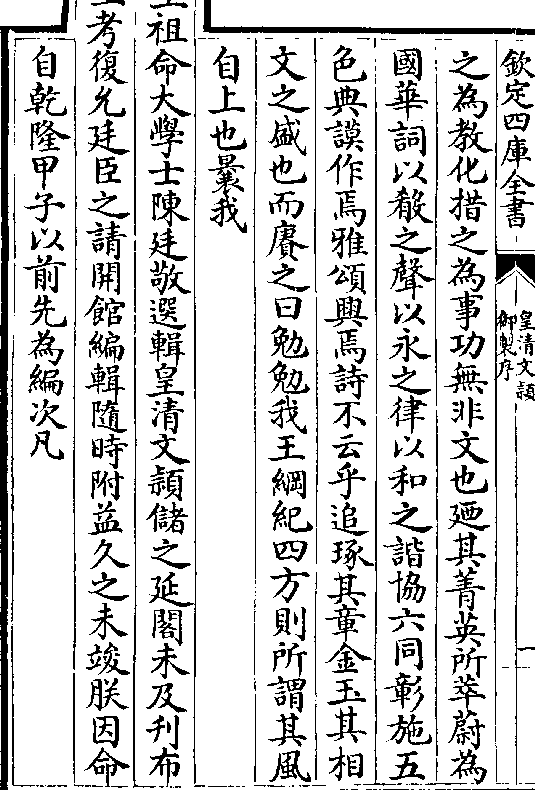 欽定四庫全書
皇清文頴
御製序
一
之為教化措之為事功無非文也廼其菁英所萃蔚為
國華詞以殽之聲以永之律以和之諧協六同彰施五
色典謨作焉雅頌興焉詩不云乎追琢其章金玉其相
文之盛也而賡之曰勉勉我王綱紀四方則所謂其風
自上也曩我
祖命大學士陳廷敬選輯皇清文頴儲之延閣未及刋布
考復允廷臣之請開館編輯隨時附益久之未竣朕因命
自乾隆甲子以前先為編次凡